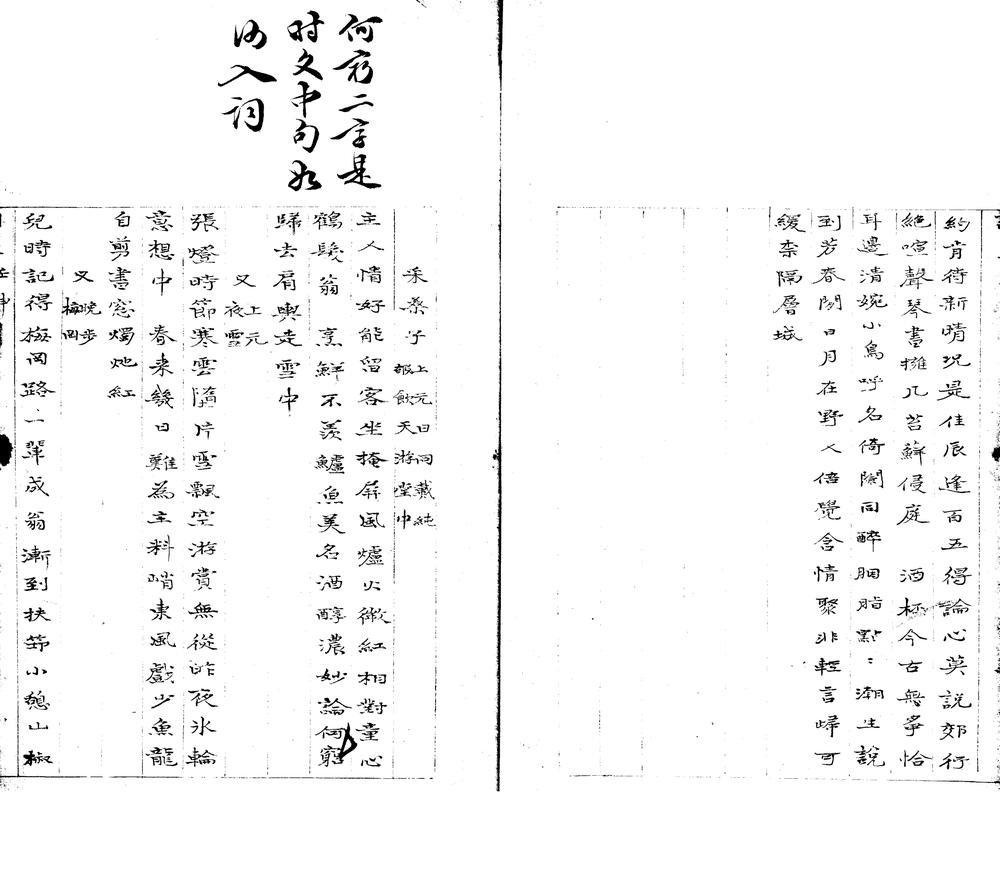 約肯待新晴況是佳辰逢百五得論心莫說郊行
絶喧聲琴書擁几苔蘚侵庭　酒極今古無爭恰
耳邊清婉小鳥呼名倚闌同醉胭脂點〻潮生說
到芳春閑日月在野人倍覺含情聚非輕言歸可
緩柰隔層城
何窮二字是
時文中句如
何入詞
采桑子 上元日同戴純報飲天游堂中
主人情好能留客坐掩屏風爐火微紅相對童心
鶴髮翁　烹鮮不羨鱸魚美名酒醇濃妙論何窮
歸去肩輿走雪中
又 上元夜雪
張燈時節寒雲隨片雪飄空游賞無從昨夜氷輪
意想中　春來幾日難為主料峭東風戲少魚龍
自剪書窓燭灺紅
又 晚步梅岡
兒時記得梅岡路一輩成翁漸到扶笻小憩山椒